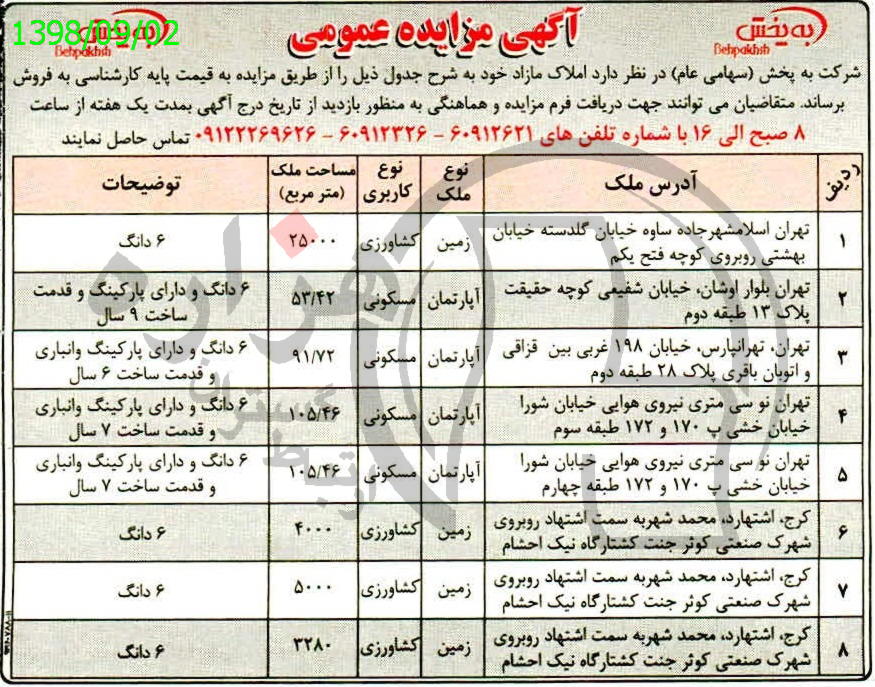 1398/09/02
به پخش
Behpakhsh
آگهی مزایده عمومی
به پخش
Behpakhsh
شرکت به پخش (سهامی عام) در نظر دارد املاک مازاد خود به شرح جدول ذیل را از طریق مزایده به قیمت پایه کارشناسی به فروش
برساند. متقاضیان می توانند جهت دریافت فرم مزایده و هماهنگی به منظور بازدید از تاریخ درج آگهی بمدت یک هفته از ساعت
۸ صبح الی ۱۶ با شماره تلفن های ۶۰۹۱۲۶۲۱ - ۶۰۹۱۲۳۲۶ - ۰۹۱۲۲۲۶۹۶۲۶ تماس حاصل نمایند
ردیف آدرس ملک نوع ملک نوع کاربری مساحت ملک (متر مربع) توضیحات
۱ تهران اسلامشهرجاده ساوه خیابان گلدسته خیابان
بهشتی روبروی کوچه فتح یکم زمین کشاورزی ۲۵۰۰۰ ۶ دانگ
۲ تهران بلوار اوشان، خیابان شفیعی کوچه حقیقت
پلاک ۱۳ طبقه دوم آپارتمان مسکونی ۵۳/۴۲ ۶ دانگ و دارای پارکینگ و قدمت
ساخت ۹ سال
۳ تهران، تهرانپارس، خیابان ۱۹۸ غربی بین قزاقی
و اتوبان باقری پلاک ۲۸ طبقه دوم آپارتمان مسکونی ۹۱/۷۲ ۶ دانگ و دارای پارکینگ وانباری
و قدمت ساخت ۶ سال
۴ تهران نو سی متری نیروی هوایی خیابان شورا
خیابان خشی پ ۱۷۰ و ۱۷۲ طبقه سوم آپارتمان مسکونی ۱۰۵/۴۶ ۶ دانگ و دارای پارکینگ وانباری
و قدمت ساخت ۷ سال
۵ تهران نو سی متری نیروی هوایی خیابان شورا
خیابان خشی پ ۱۷۰ و ۱۷۲ طبقه چهارم آپارتمان مسکونی ۱۰۵/۴۶ ۶ دانگ و دارای پارکینگ وانباری
و قدمت ساخت ۷ سال
۶ کرج، اشتهارد، محمد شهربه سمت اشتهاد روبروی
شهرک صنعتی کوثر جنت کشتارگاه نیک احشام زمین کشاورزی ۴۰۰۰ ۶ دانگ
۷ کرج، اشتهارد، محمد شهربه سمت اشتهاد روبروی
شهرک صنعتی کوثر جنت کشتارگاه نیک احشام زمین کشاورزی ۵۰۰۰ ۶ دانگ
۸ کرج، اشتهارد، محمد شهربه سمت اشتهاد روبروی
شهرک صنعتی کوثر جنت کشتارگاه نیک احشام زمین کشاورزی ۳۲۸۰ ۶ دانگ
هزاره
گستران